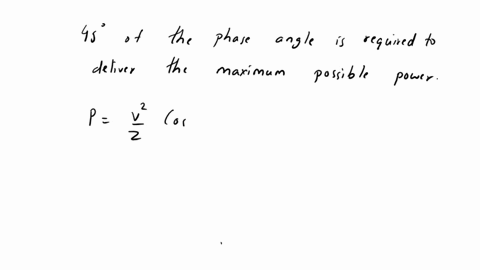 45° of the phase angle is required to
deliver the maximum possible power.
P = V²/2 Cos